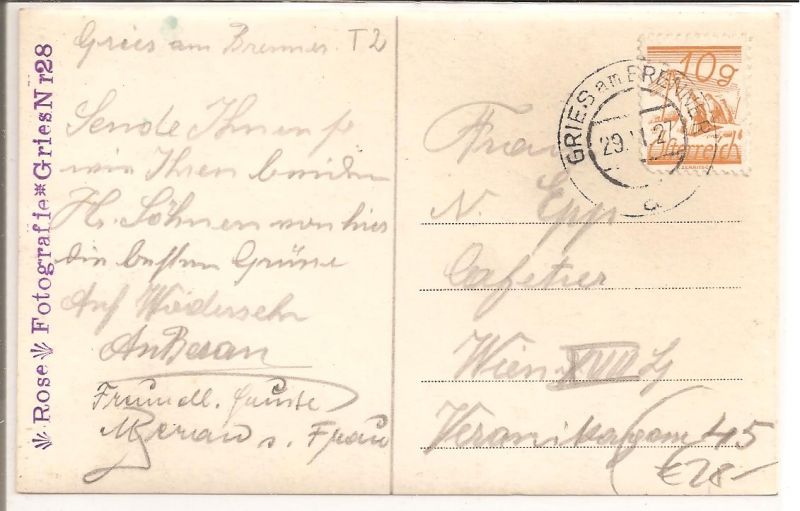 Gries am Brenner T2
Sende Ihnen so
wie Ihren beiden
H. Söhnen von hier
die besten Grüsse
Auf Wiedersehn
Freundl. Grüsse
u. Frau
Rose Fotografie*Gries Nr28
GRIES am BRENNER
29. 27
a
10g
Österreich
Frau
N. Epp
Cafetier
Wien XVIII
Veronikagasse 45
€28-